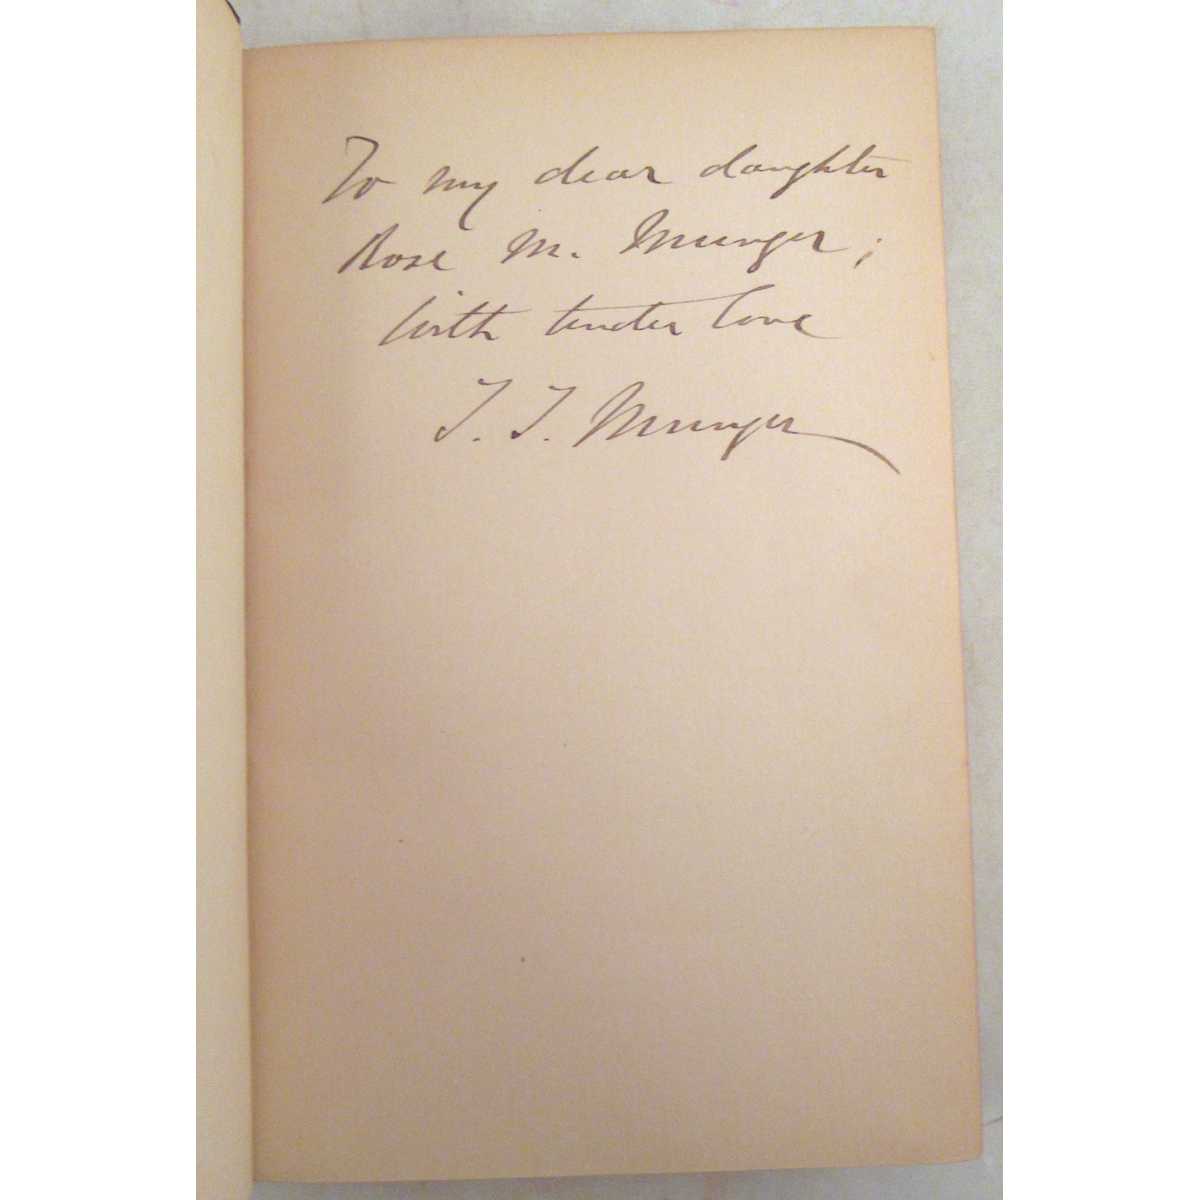 To my dear daughter
Rose M. Munger;
With tender love
T. T. Munger